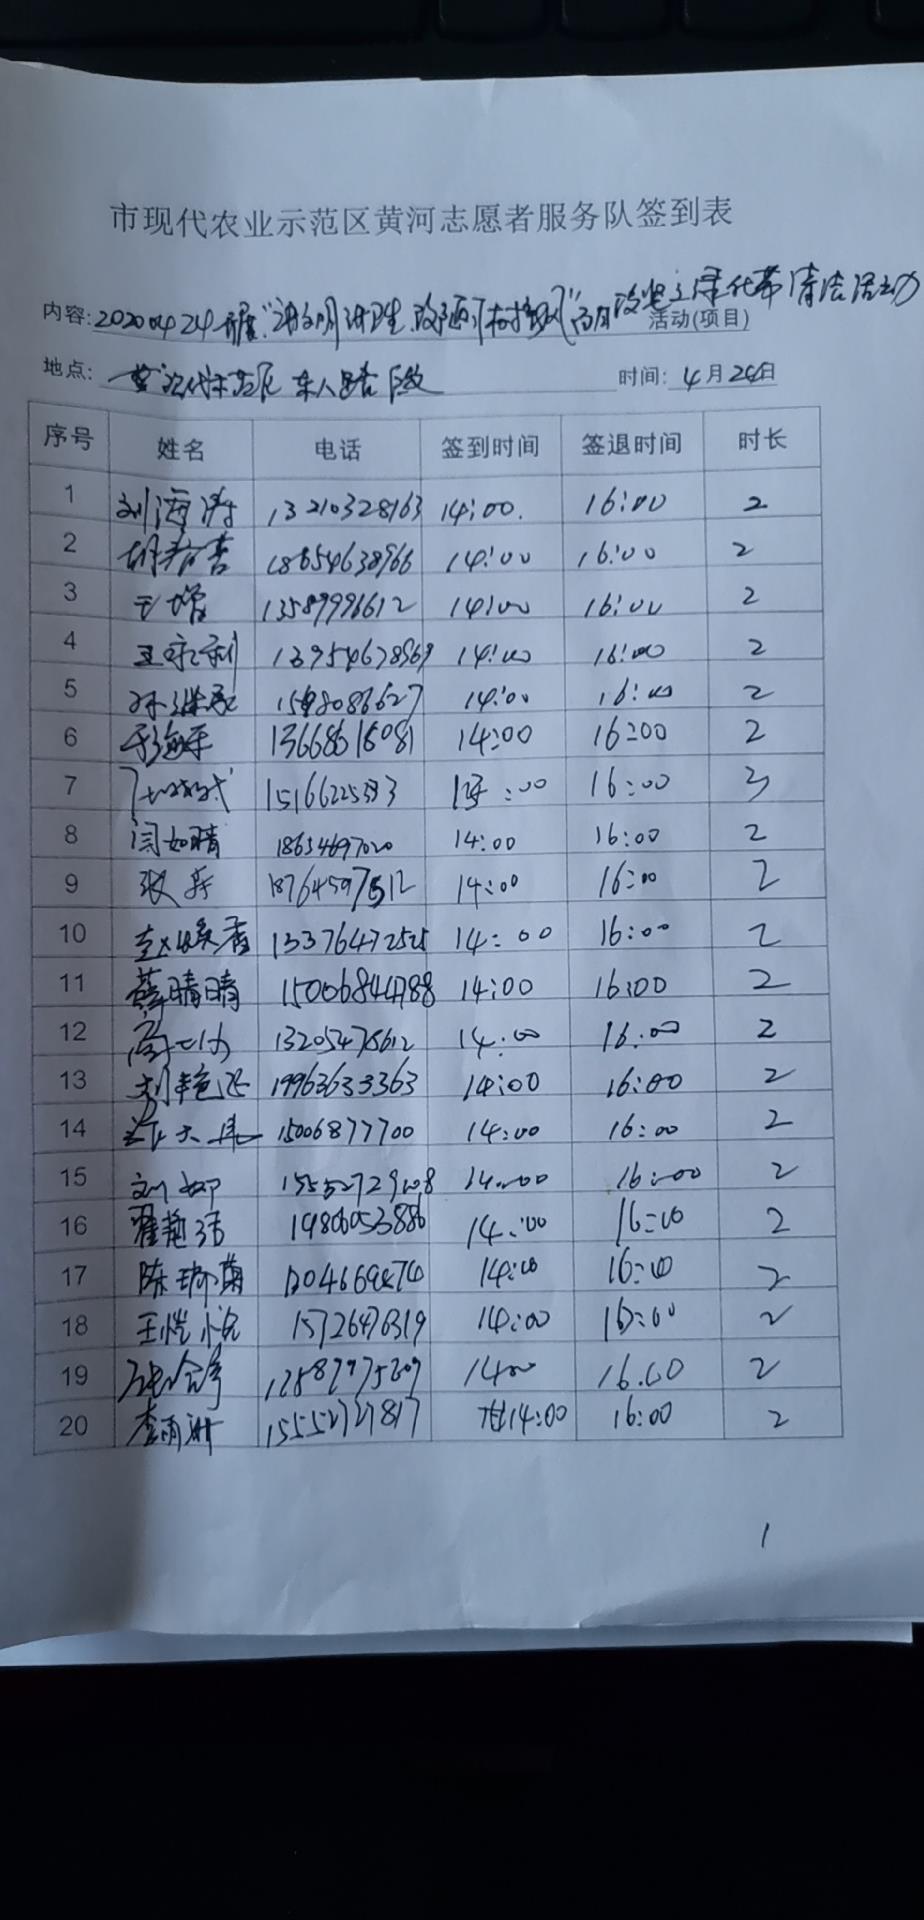 市现代农业示范区黄河志愿者服务队签到表
内容: 20200424开展"讲文明讲卫生 改陋习树新风" 攻坚之绿化带清洁活动
活动(项目)
地点: 东八路 段 时间: 4月24日
序号 姓名 电话 签到时间 签退时间 时长
1 刘海涛 13210328163 14:00. 16:00 2
2 胡春营 18654638966 14:00 16:00 2
3 于增 13589996612 14:00 16:00 2
4 王永利 13954678569 14:00 16:00 2
5 孙继承 14:00 16:00 2
6 13668616081 14:00 16:00 2
7 :00 16:00 3
8 闫如晴 18654697020 14:00 16:00 2
9 张兵 18764597512 14:00 16:00 2
10 赵焕香 13376472525 14:00 16:00 2
11 薛晴晴 15006844788 14:00 16:00 2
12 高 13205475612 14:00 16:00 2
13 刘艳 19963633363 14:00 16:00 2
14 15006877700 14:00 16:00 2
15 刘 14:00 16:00 2
16 翟艳 19806053886 14:00 16:00 2
17 陈瑞菊 14:00 16:00 2
18 王恺悦 14:00 16:00 2
19 1400 16.00 2
20 李雨洲 15552727817 14:00 16:00 2
1